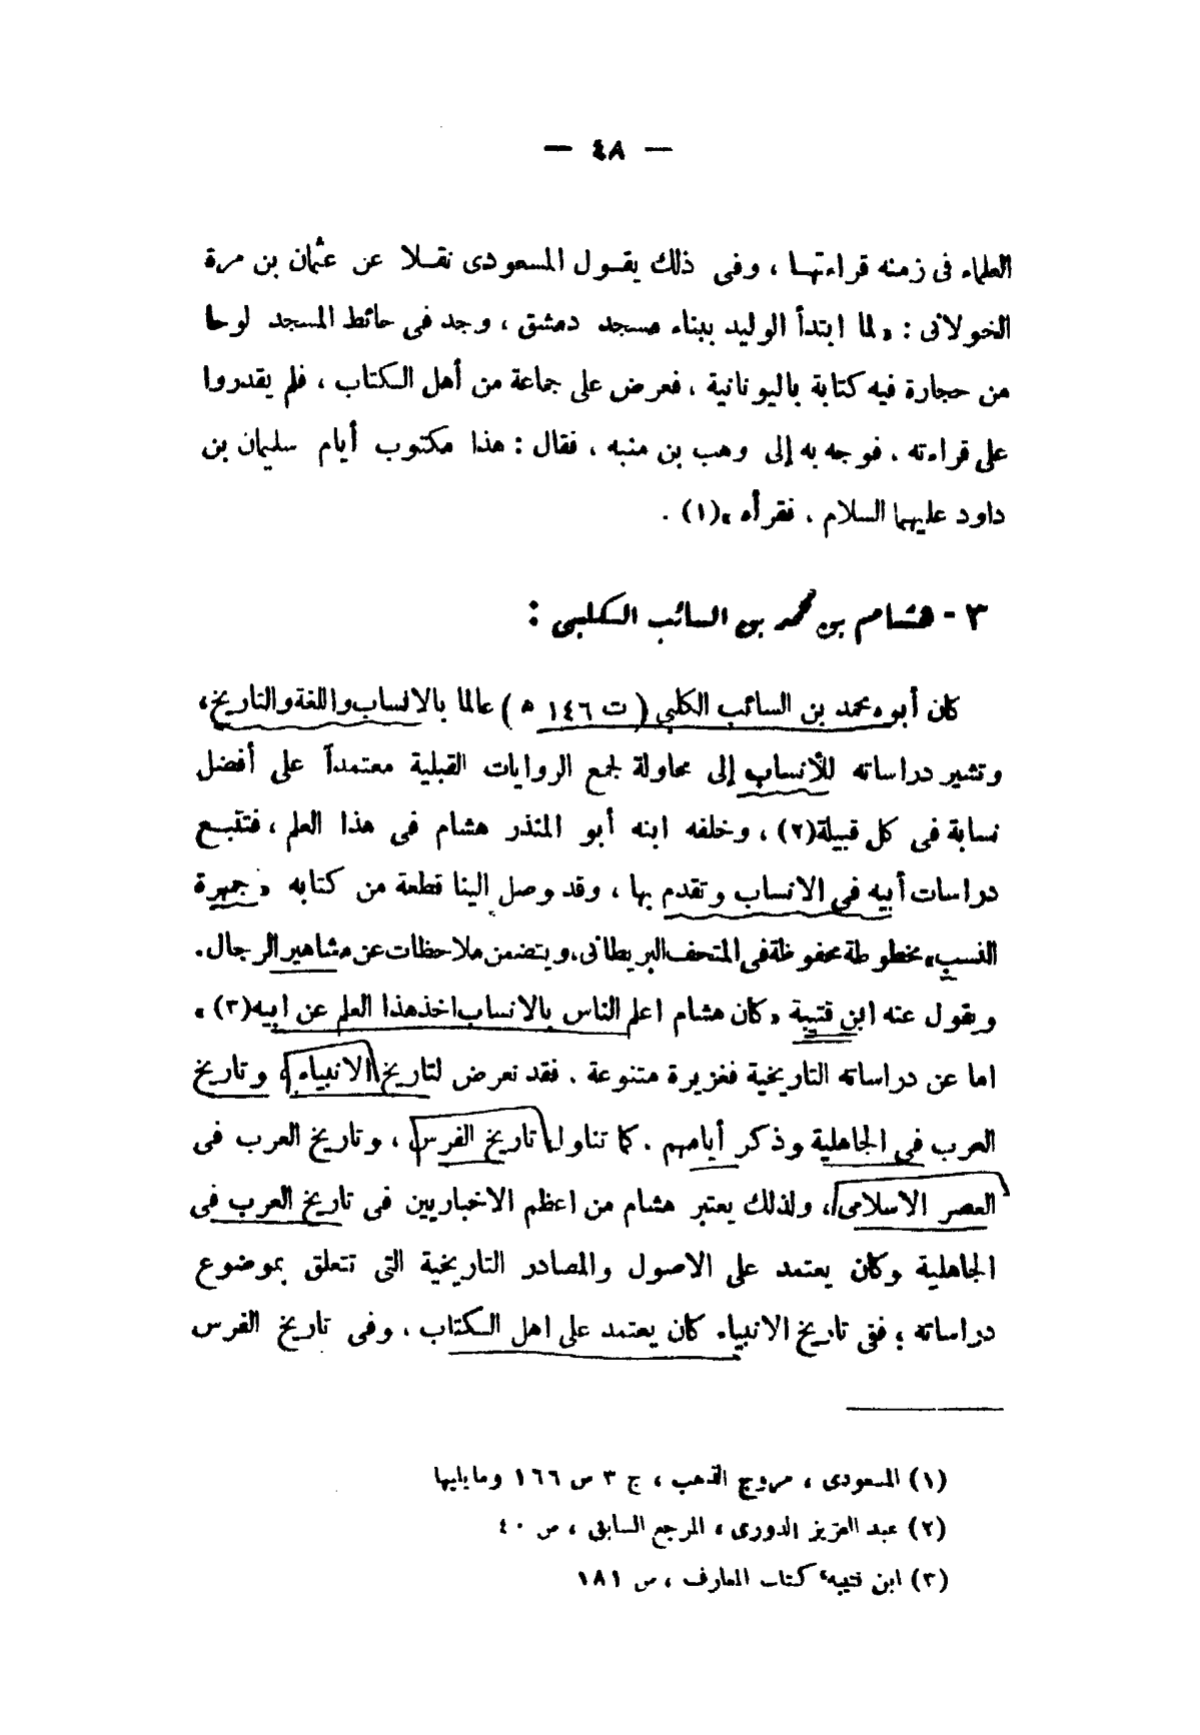 — ٤٨ —
العلماء فى زمنه قراءتها ، وفى ذلك يقول المسعودى نقلا عن عثمان بن مرة
الخولانى : « لما ابتدأ الوليد ببناء مسجد دمشق ، وجد فى حائط المسجد لوحا
من حجارة فيه كتابة باليونانية ، فعرض على جماعة من أهل الكتاب ، فلم يقدروا
على قراءته ، فوجه به إلى وهب بن منبه ، فقال : هذا مكتوب أيام سليمان بن
داود عليهما السلام ، فقرأه »(١) .
٣ - هشام بن محمد بن السائب الكلبى :
كان أبوه محمد بن السائب الكلبى ( ت ١٤٦ ه ) عالما بالانساب واللغة والتاريخ ،
وتشير دراساته للأنساب إلى محاولة لجمع الروايات القبلية معتمداً على أفضل
نسابة فى كل قبيلة(٢) ، وخلفه ابنه أبو المنذر هشام فى هذا العلم ، فتتبع
دراسات أبيه فى الانساب وتقدم بها ، وقد وصل الينا قطعة من كتابه « جمهرة
النسب » مخطوطة محفوظة فى المتحف البريطانى ، ويتضمن ملاحظات عن مشاهير الرجال .
ويقول عنه ابن قتيبة « كان هشام اعلم الناس بالانساب اخذ هذا العلم عن ابيه(٣) »
اما عن دراساته التاريخية فغزيرة متنوعة . فقد تعرض لتاريخ الانبياء ، وتاريخ
العرب فى الجاهلية وذكر أيامهم . كما تناول تاريخ الفرس ، وتاريخ العرب فى
العصر الاسلامى ، ولذلك يعتبر هشام من اعظم الاخباريين فى تاريخ العرب فى
الجاهلية وكان يعتمد على الاصول والمصادر التاريخية التى تتعلق بموضوع
دراساته ؛ ففى تاريخ الانبياء كان يعتمد على اهل الكتاب ، وفى تاريخ الفرس
(١) المسعودى ، مروج الذهب ، ج ٣ ص ١٦٦ وما يليها
(٢) عبد العزيز الدورى ، المرجع السابق ، ص ٤٠
(٣) ابن قتيبه ، كتاب المعارف ، ص ١٨١